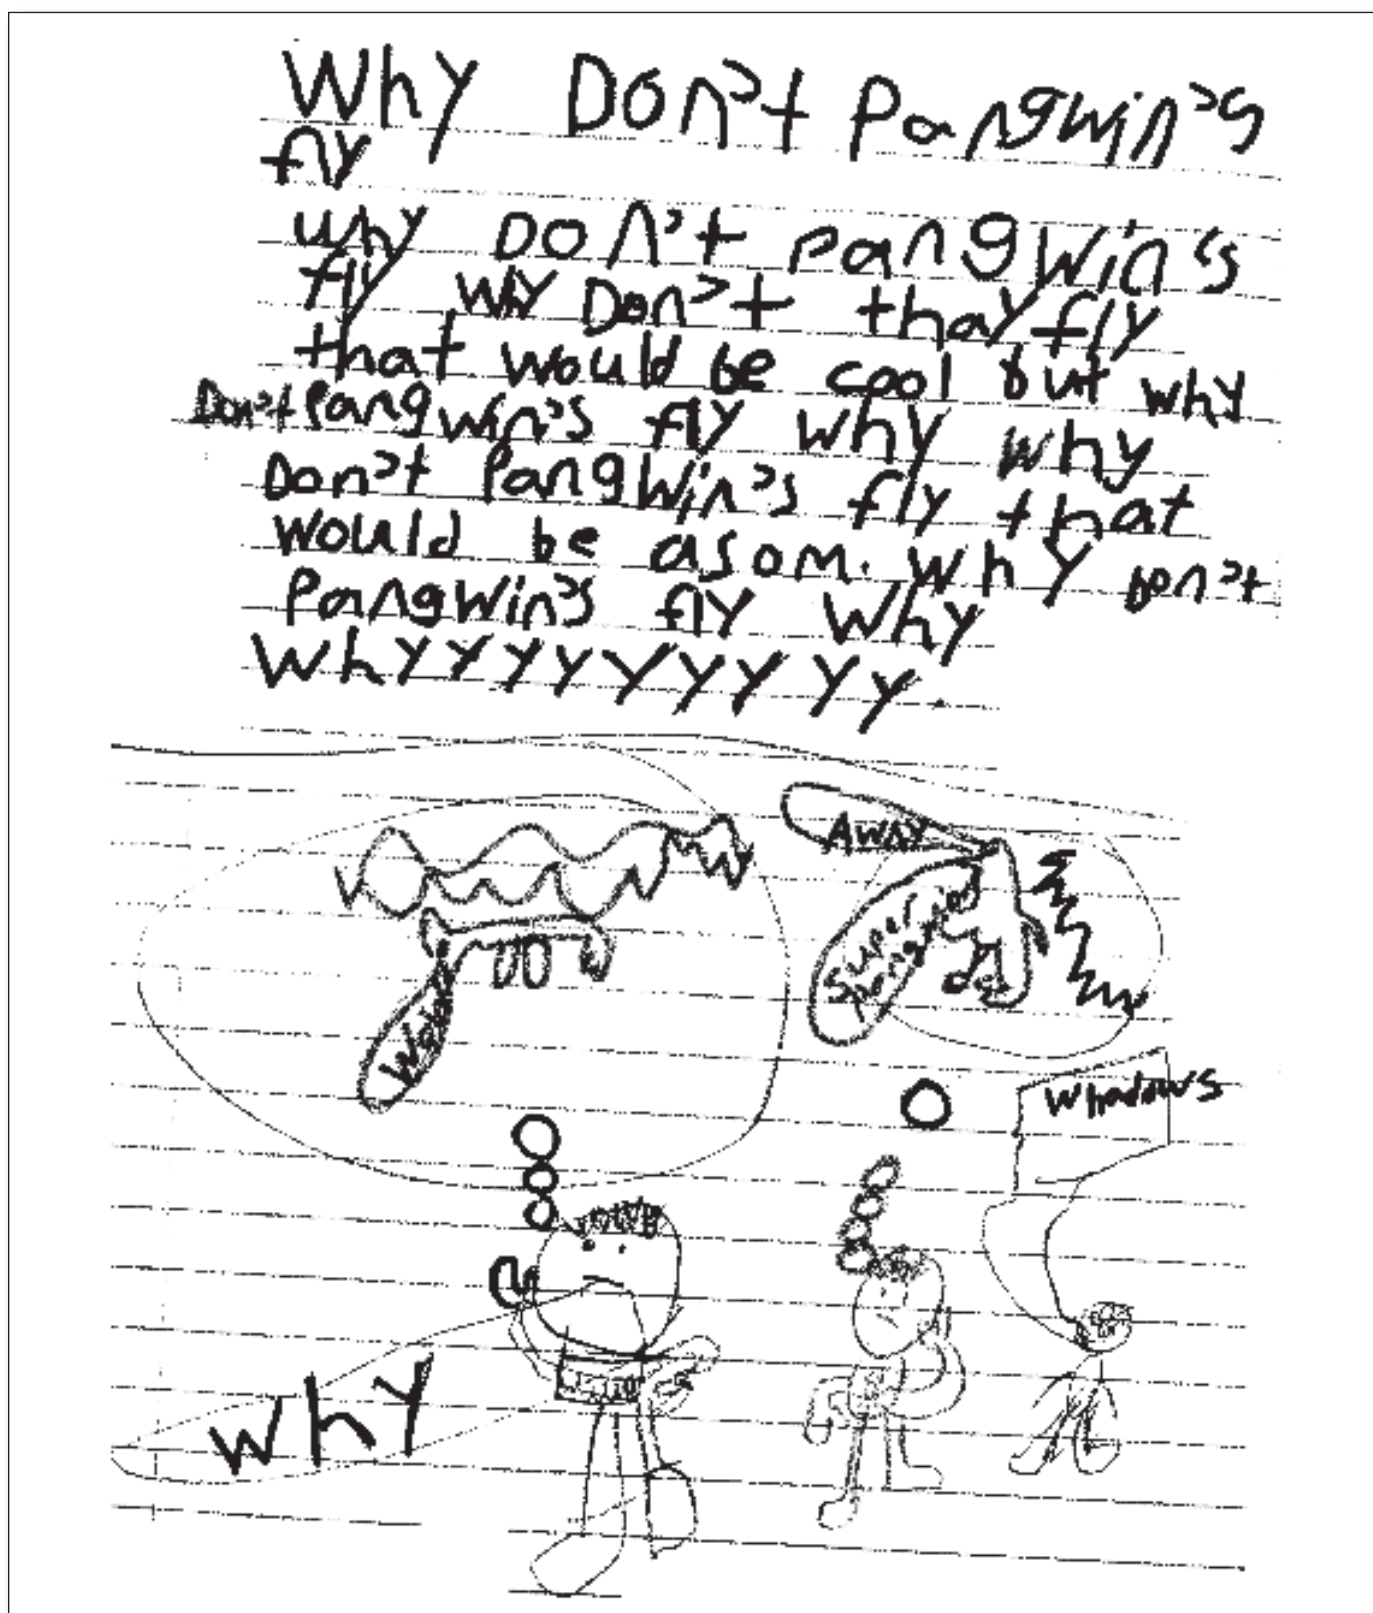 Why Don't Pangwin's
fly
why Don't pangwin's
fly why Don't thay fly
that would be cool but why
Don't Pangwin's fly why why
Don't Pangwin's fly that
would be asom. why Don't
Pangwin's fly why
whyyyyyyyyy.
Away
Super
pangwin
Whaddows
why